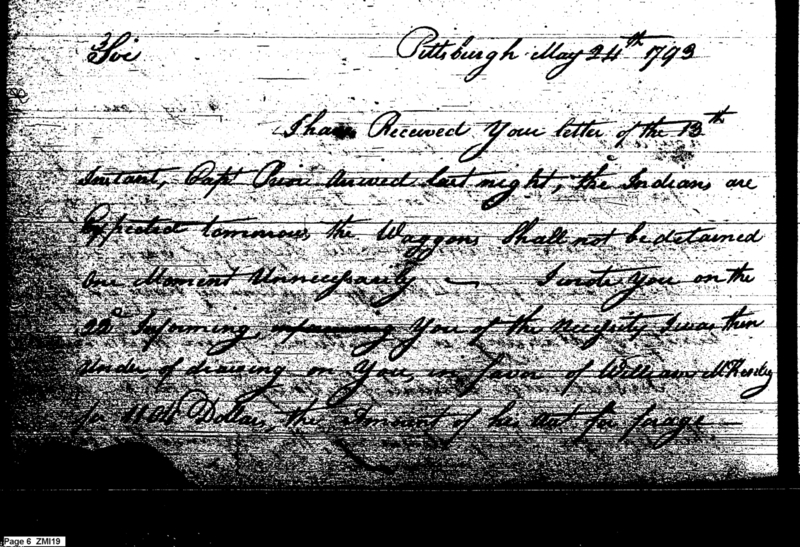 Sir Pittsburgh May 24th 1793
I have Received Your letter of the 13th
Instant, Capt Prior Arrived last night, the Indians are
Expected tomorrow, the Waggons Shall not be detained
One Moment Unnecessarily — I wrote You on the
22d Informing, informing You of the Necessity I was then
Under of drawing on You, in favor of William
for Dollars, the Amount of his Acct for forage —
Page 6 ZMI19